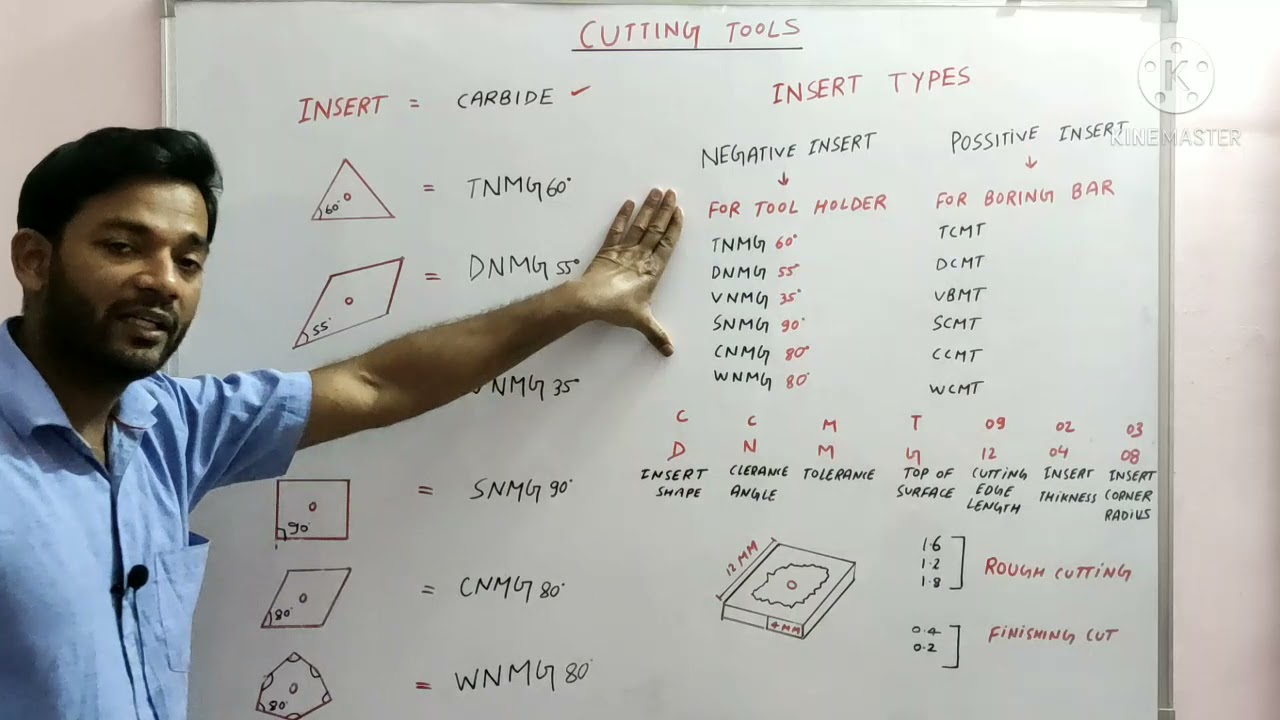 CUTTING TOOLS
INSERT = CARBIDE
60°
= TNMG 60°
55°
= DNMG 55°
NMG 35°
90°
= SNMG 90°
80°
= CNMG 80°
80°
= WNMG 80°
INSERT TYPES
NEGATIVE INSERT
FOR TOOL HOLDER
TNMG 60°
DNMG 55°
VNMG 35°
SNMG 90°
CNMG 80°
WNMG 80°
POSSITIVE INSERT
FOR BORING BAR
TCMT
DCMT
VBMT
SCMT
CCMT
WCMT
C C M T 09 02 03
D N M G 12 04 08
INSERT SHAPE
CLERANCE ANGLE
TOLERANCE
TOP OF SURFACE
CUTTING EDGE LENGTH
INSERT THIKNESS
INSERT CORNER RADIUS
12 MM
4 MM
1.6
1.2
1.8
ROUGH CUTTING
0.4
0.2
FINISHING CUT
K
KINEMASTER